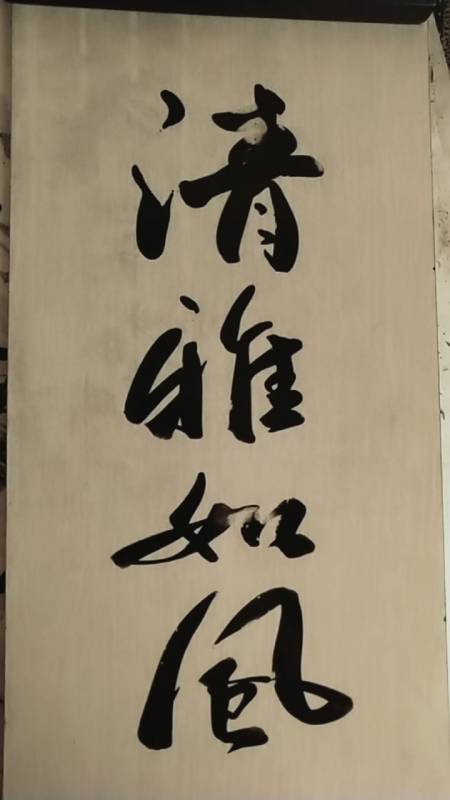 清雅如風